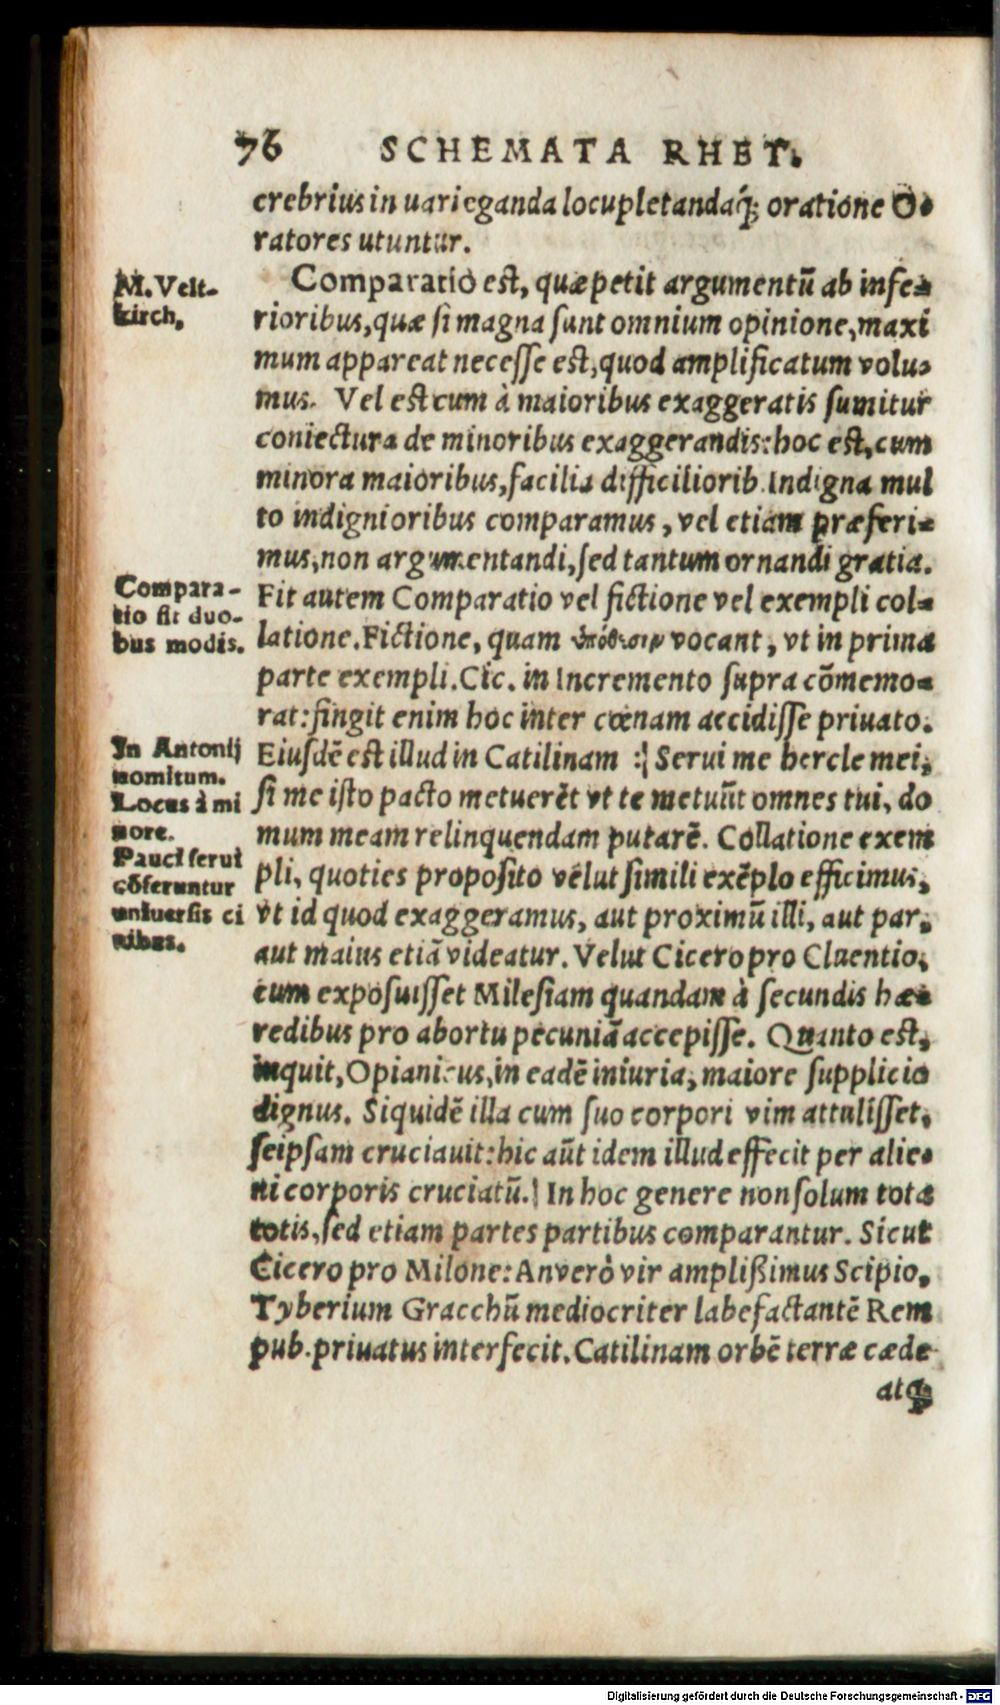 76 SCHEMATA RHET.
crebrius in uarieganda locupletandaq́; oratione O-
ratores utuntur.
M. Velt-
kirch.
Comparatio est, quæ petit argumentū ab infe-
rioribus, quæ si magna sunt omnium opinione, maxi
mum appareat necesse est, quod amplificatum volu-
mus. Vel est cum à maioribus exaggeratis sumitur
coniectura de minoribus exaggerandis: hoc est, cum
minora maioribus, facilia difficiliorib. Indigna mul
to indignioribus comparamus, vel etiam præferi-
mus, non argumentandi, sed tantum ornandi gratia.
Compara-
tio fit duo-
bus modis.
Fit autem Comparatio vel fictione vel exempli col-
latione. Fictione, quam ὑπόθεσιν vocant, vt in prima
parte exempli. Cic. in Incremento supra cōmemo-
rat: fingit enim hoc inter cœnam accidisse priuato.
In Antonij
uomitum.
Locus à mi
nore.
Pauci serui
cōferuntur
uniuersis ci
uibus.
Eiusdē est illud in Catilinam :| Serui me hercle mei,
si me isto pacto metuerēt vt te metuūt omnes tui, do
mum meam relinquendam putarē. Collatione exem
pli, quoties proposito velut simili exēplo efficimus,
vt id quod exaggeramus, aut proximū illi, aut par,
aut maius etiā videatur. Velut Cicero pro Cluentio,
cum exposuisset Milesiam quandam à secundis hæ-
redibus pro abortu pecuniā accepisse. Quanto est,
inquit, Opianicus, in eadē iniuria, maiore supplicio
dignus. Siquidē illa cum suo corpori vim attulisset,
seipsam cruciauit: hic aūt idem illud effecit per alie-
ni corporis cruciatū.| In hoc genere non solum tota
totis, sed etiam partes partibus comparantur. Sicut
Cicero pro Milone: An verò vir amplißimus Scipio,
Tyberium Gracchū mediocriter labefactantē Rem
pub. priuatus interfecit. Catilinam orbē terræ cæde
atq;
Digitalisierung gefördert durch die Deutsche Forschungsgemeinschaft - DFG